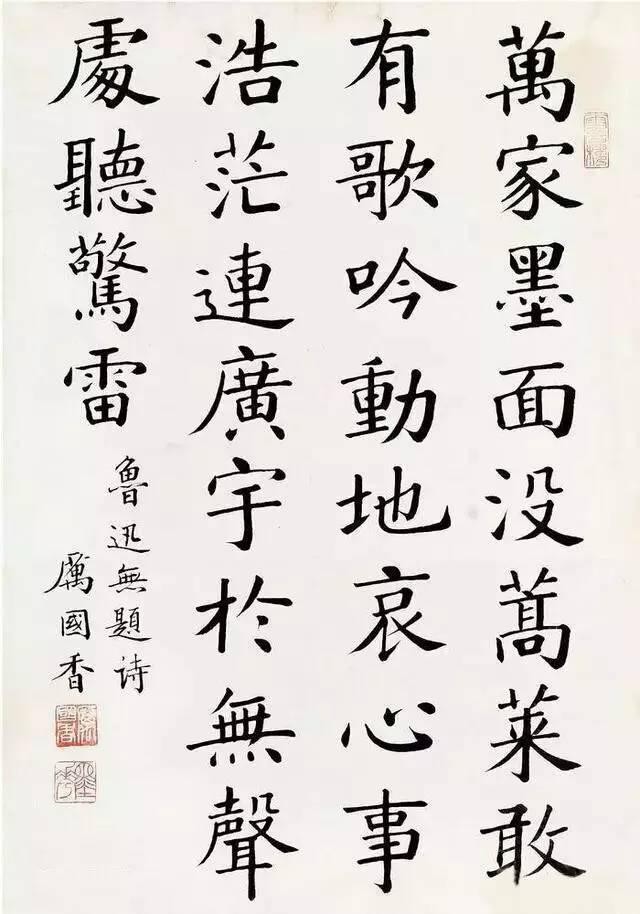 萬家墨面没蒿萊敢
有歌吟動地哀心事
浩茫連廣宇於無聲
處聽驚雷
魯迅無題詩
厲國香